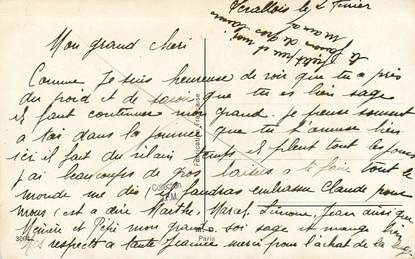 Levallois le 2 Février
Mon grand cheri
Comme je suis heureuse de voir que tu a pris
du poid et de savoir que tu es bien sage
il faut continuer mon grand, je pense souvent
a toi dans la journée que tu t amuse bien
ici il fait du vilain temps il pleut tout les jours
j'ai beaucoups de gros baisers a te faire tout le
monde me dis tu Claude pour
nous c'est a dire Marthe, Marcel, Simone, Jean ainsi que
Mémère et Pépé mon grand soi sage et mange bien
respects a tante merci pour l'achat de la
Fabrication Française
Collection
Paris